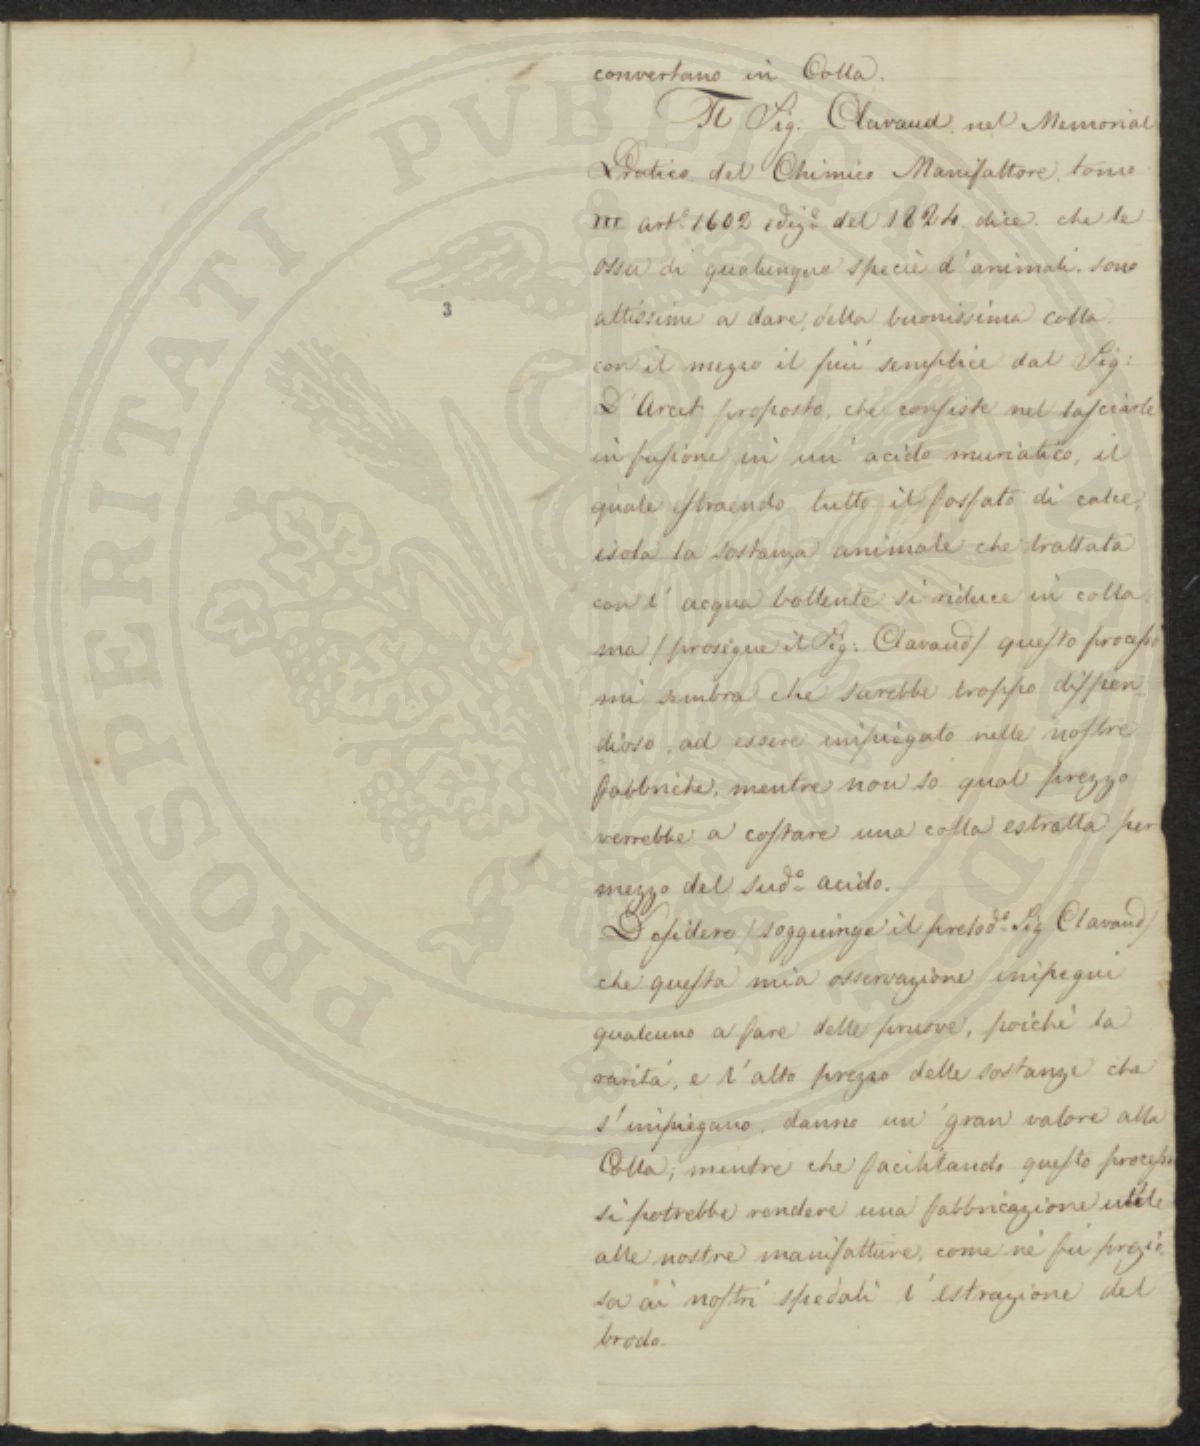 convertano in Colla.
Il Sig. Clavaud nel Memorial
Pratico del Chimico Manifattore, tomo
III art.º 1602 ediz.e del 1824 dice che le
ossa di qualunque specie d'animali sono
attissime a dare della buonissima colla
con il mezzo il più semplice dal Sig:
D'Arcet proposto, che consiste nel lasciarle
in fusione in un' acido muriatico, il
quale estraendo tutto il fosfato di calce,
isola la sostanza animale che trattata
con l' acqua bollente si riduce in colla
ma / prosegue il Sig: Clavaud / questo processo
mi sembra che sarebbe troppo dispen-
dioso, ad essere impiegato nelle nostre
fabbriche, mentre non so qual prezzo
verrebbe a costare una colla estratta per
mezzo del sud.º acido.
Desidero / sogguinge il prelod.º Sig Clavaud /
che questa mia osservazione impegni
qualcuno a fare delle pruove, poiché la
rarità, e l'alto prezzo delle sostanze che
s'impiegano, danno un' gran valore alla
Colla; mentre che facilitando questo processo
si potrebbe rendere una fabbricazione utile
alle nostre manifatture, come né fù prezio-
sa ai nostri spedali l'estrazione del
brodo.
3
PROSPERITATI PUBLICAE